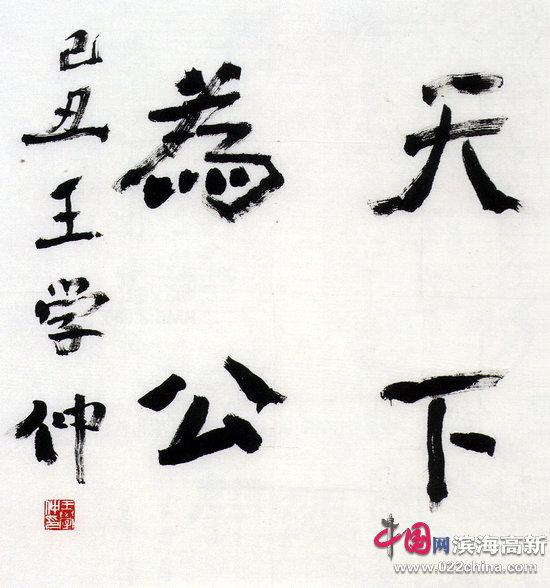 天下
為公
己丑王学仲
中国网滨海高新
www.022china.com